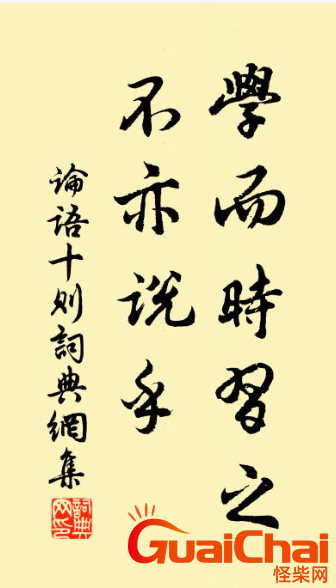 學而時習之
不亦説乎
論語十则詞典網集
詞典
网
GuaiChai
怪柴网